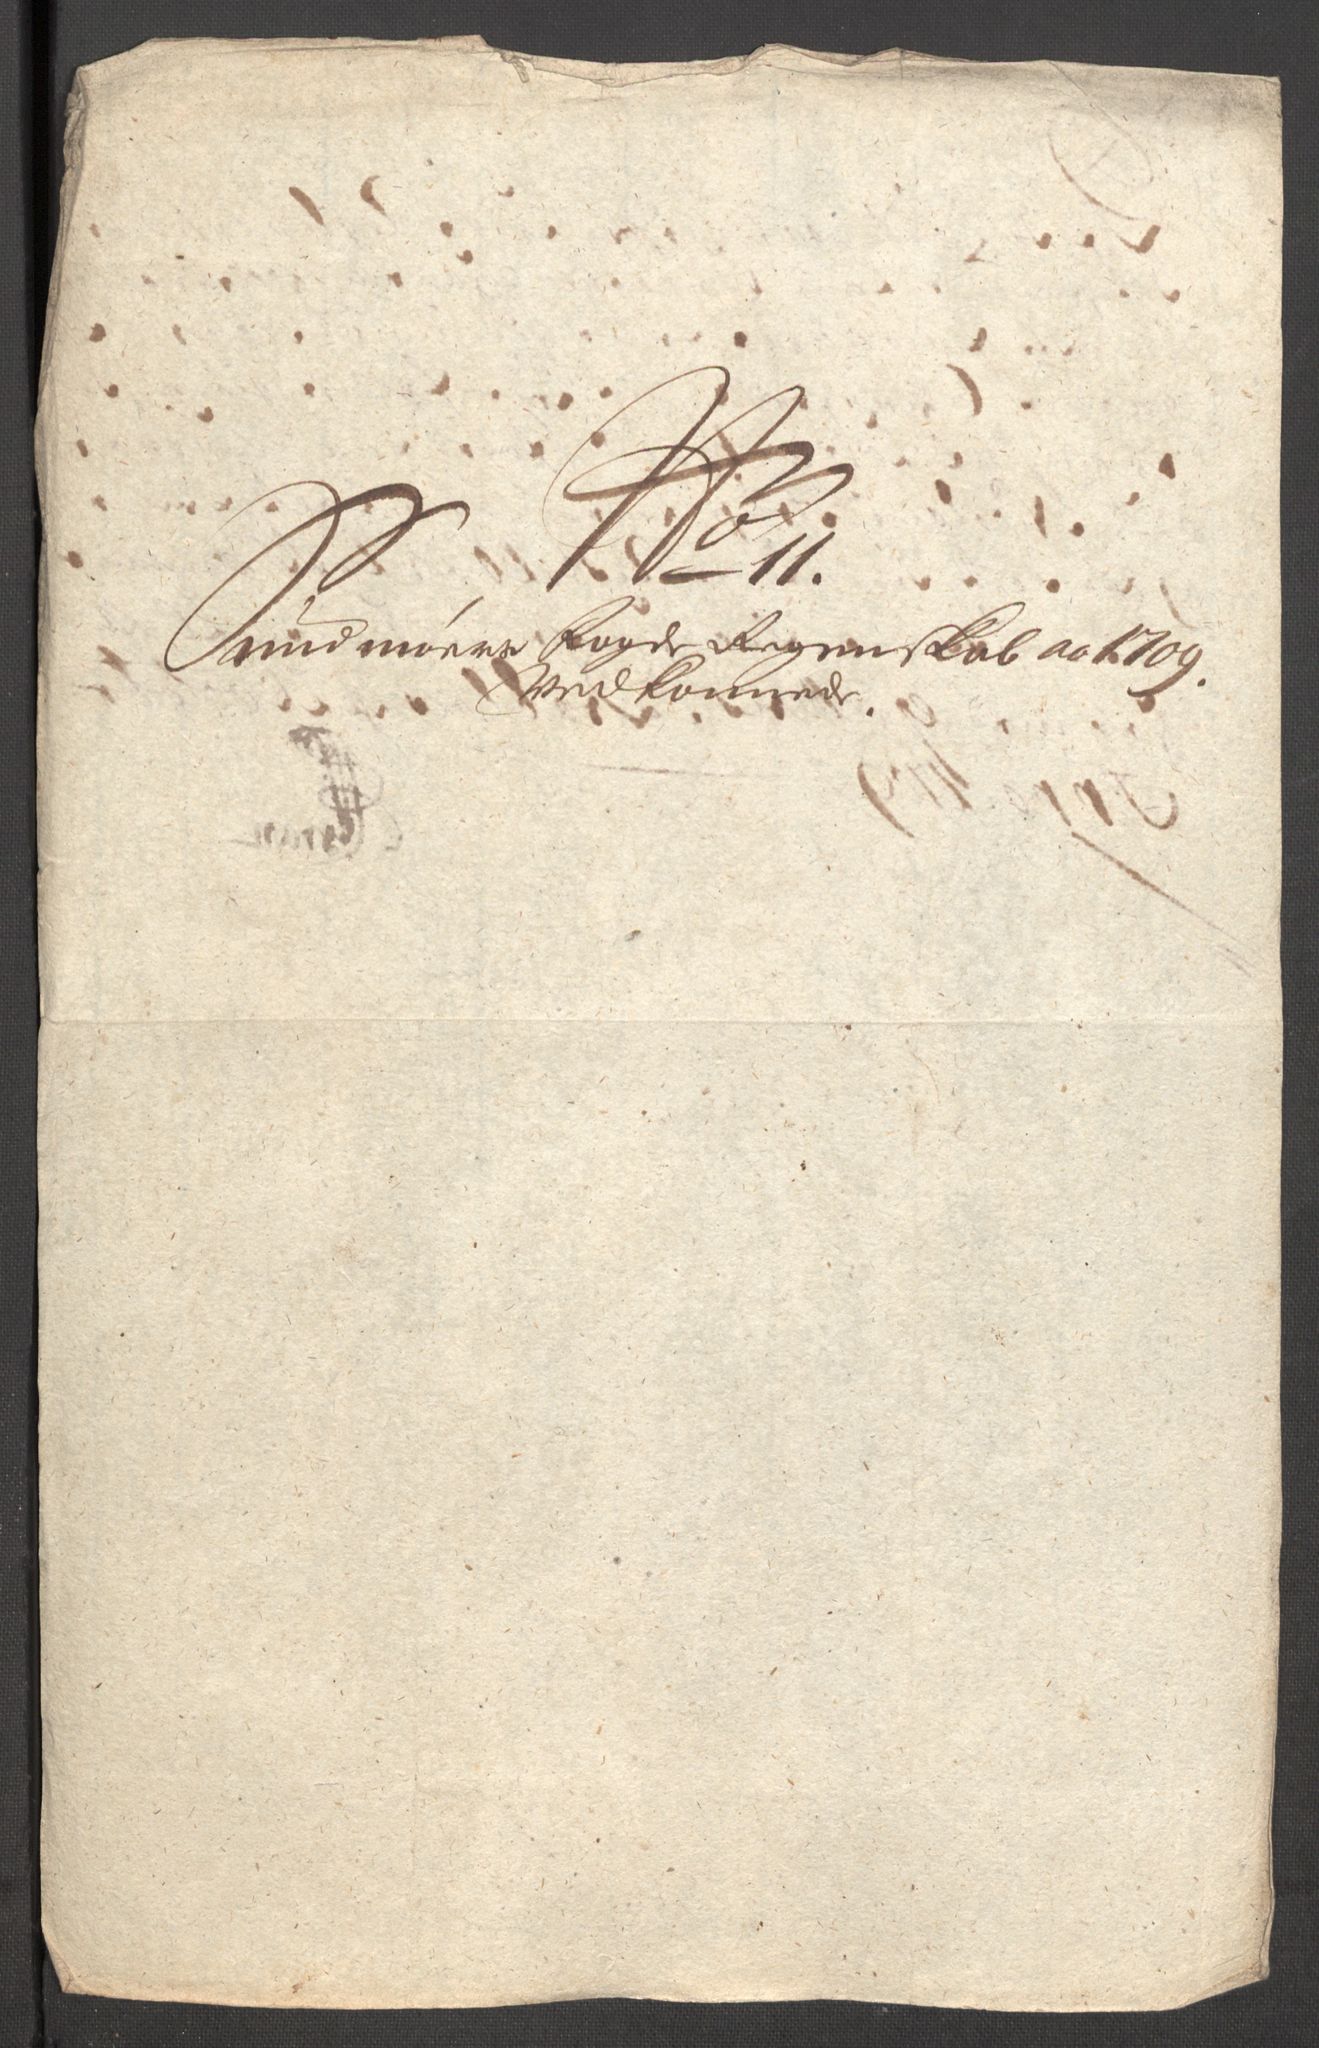 No
11.
Sundmöers Fogde Regenskab ao 1709.
Vedkommede.